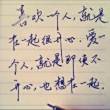 喜欢一个人,就是
在一起很开心,爱
一个人,就是即使不
开心,也想在一起.